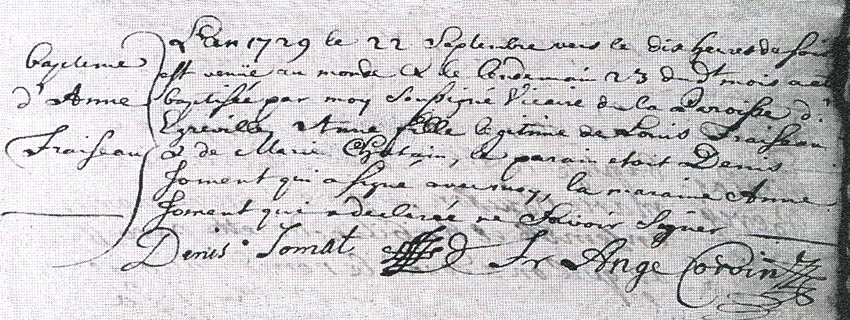 bapteme
d'Anne
Fraiseau
L'an 1729 le 22 Septembre vers le dix heures du soir
est venüe au monde & le lendemain 23 du dt mois a été
baptisée par moy soussigné Vicaire de la Paroisse d'
Egreville, Anne fille legitime de Louis Fraiseau
& de Marie Chatain, le parain etoit Denis
Joment qui a signé avec moy, la maraine Anne
Joment qui a declarée ne savoir signer
Denis Jomat Fr Ange Corvin